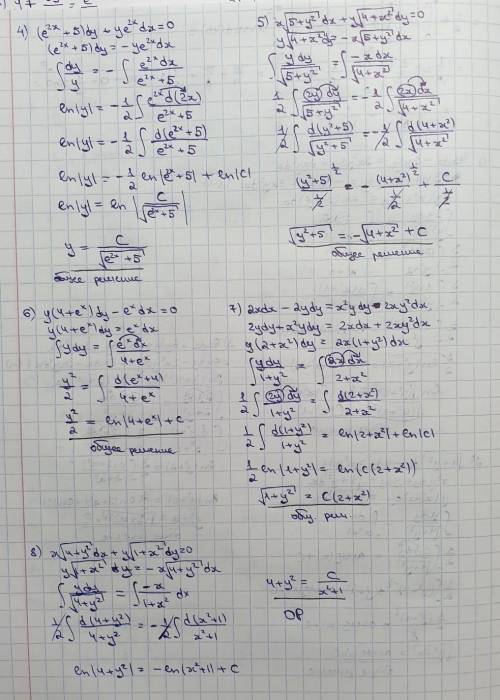 4) (e²ˣ + 5)dy + ye²ˣdx = 0
(e²ˣ + 5)dy = - ye²ˣdx
∫ dy/y = - ∫ e²ˣdx/(e²ˣ + 5)
ln|y| = - 1/2 ∫ e²ˣ d(2x)/(e²ˣ + 5)
ln|y| = - 1/2 ∫ d(e²ˣ + 5)/(e²ˣ + 5)
ln|y| = - 1/2 ln|e²ˣ + 5| + ln|C|
ln|y| = ln |C/√(e²ˣ + 5)|
y = C/√(e²ˣ + 5)
общее решение
5) x√(5+y²)dx + y√(4+x²)dy = 0
y√(4+x²)dy = - x√(5+y²)dx
∫ ydy/√(5+y²) = ∫ -xdx/√(4+x²)
1/2 ∫ 2y dy/√(5+y²) = - 1/2 ∫ 2x dx/√(4+x²)
1/2 ∫ d(y²+5)/√(y²+5) = - 1/2 ∫ d(4+x²)/√(4+x²)
(y²+5)^½/½ = - (4+x²)^½/½ + C/½
√(y²+5) = -√(4+x²) + C
общее решение
6) y(4+eˣ)dy - eˣdx = 0
y(4+eˣ)dy = eˣdx
∫ ydy = ∫ eˣdx/(4+eˣ)
y²/2 = ∫ d(eˣ+4)/(4+eˣ)
y²/2 = ln|4+eˣ| + C
общее решение
7) 2xdx - 2ydy = x²ydy - 2xy²dx
2ydy + x²ydy = 2xdx + 2xy²dx
y(2+x²)dy = 2x(1+y²)dx
∫ ydy/(1+y²) = ∫ 2x dx/(2+x²)
1/2 ∫ 2y dy/(1+y²) = ∫ d(2+x²)/(2+x²)
1/2 ∫ d(1+y²)/(1+y²) = ln|2+x²| + ln|C|
1/2 ln|1+y²| = ln(C(2+x²))
√(1+y²) = C(2+x²)
общ. реш.
8) x√(4+y²)dx + y√(1+x²)dy = 0
y√(1+x²) dy = -x√(4+y²)dx
∫ ydy/√(4+y²) = ∫ -x/(1+x²) dx
1/2 ∫ d(4+y²)/(4+y²) = - 1/2 ∫ d(x²+1)/(x²+1)
ln|4+y²| = - ln(x²+1) + C
4+y² = C/(x²+1)
ОР